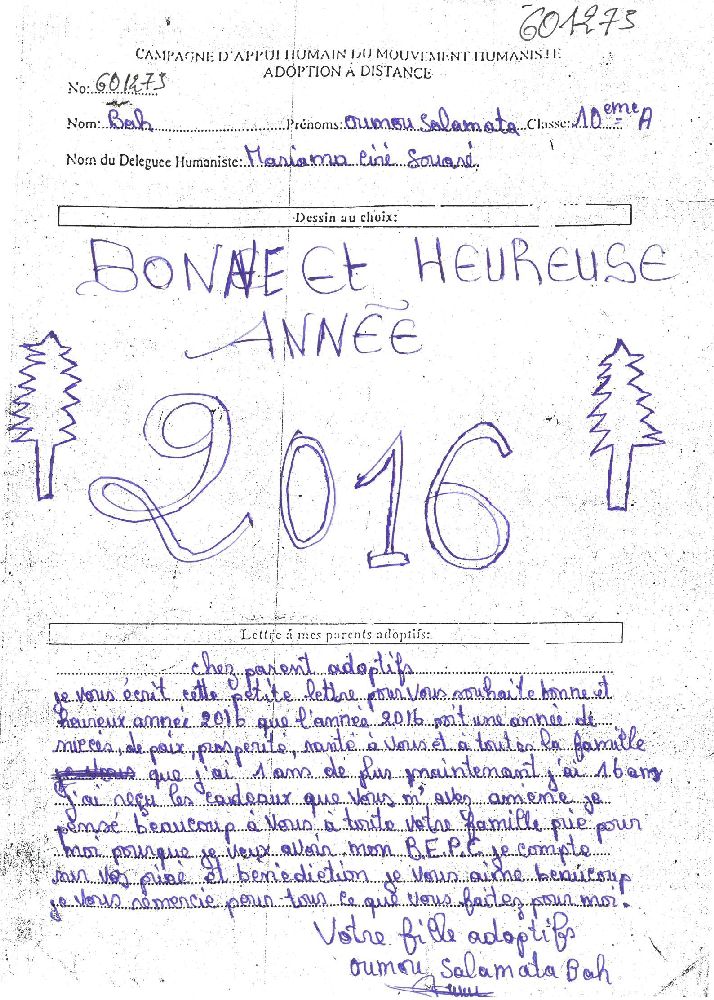 601273
CAMPAGNE D'APPUI HUMAIN DU MOUVEMENT HUMANISTE
ADOPTION À DISTANCE
No: 601273
Nom: Bah Prénoms: Oumou Salamata Classe: 10 eme A
Nom du Deleguee Humaniste: Mariama Ciré Souaré
Dessin au choix:
BONNE Et HEUREUSE
ANNÉE
2016
Lettre à mes parents adoptifs:
chez parent adoptifs
je vous écrit cette petite lettre pour vous souhaite bonne et
heureux année 2016 que l'année 2016 soit une année de
succes, de paix, prosperité, santé à vous et a toutes la famille
que j'ai 1 ans de plus maintenant j'ai 16 ans
J'ai reçu les cadeaux que vous m'avez amene je
pense beaucoup à vous à toute votre famille prie pour
moi pourque je veux avoir mon B.E.P.C je compte
sur vos prière et benediction je vous aime beaucoup
je vous remercie pour tous ce que vous faitez pour moi.
Votre fille adoptifs
Oumou Salamata Bah